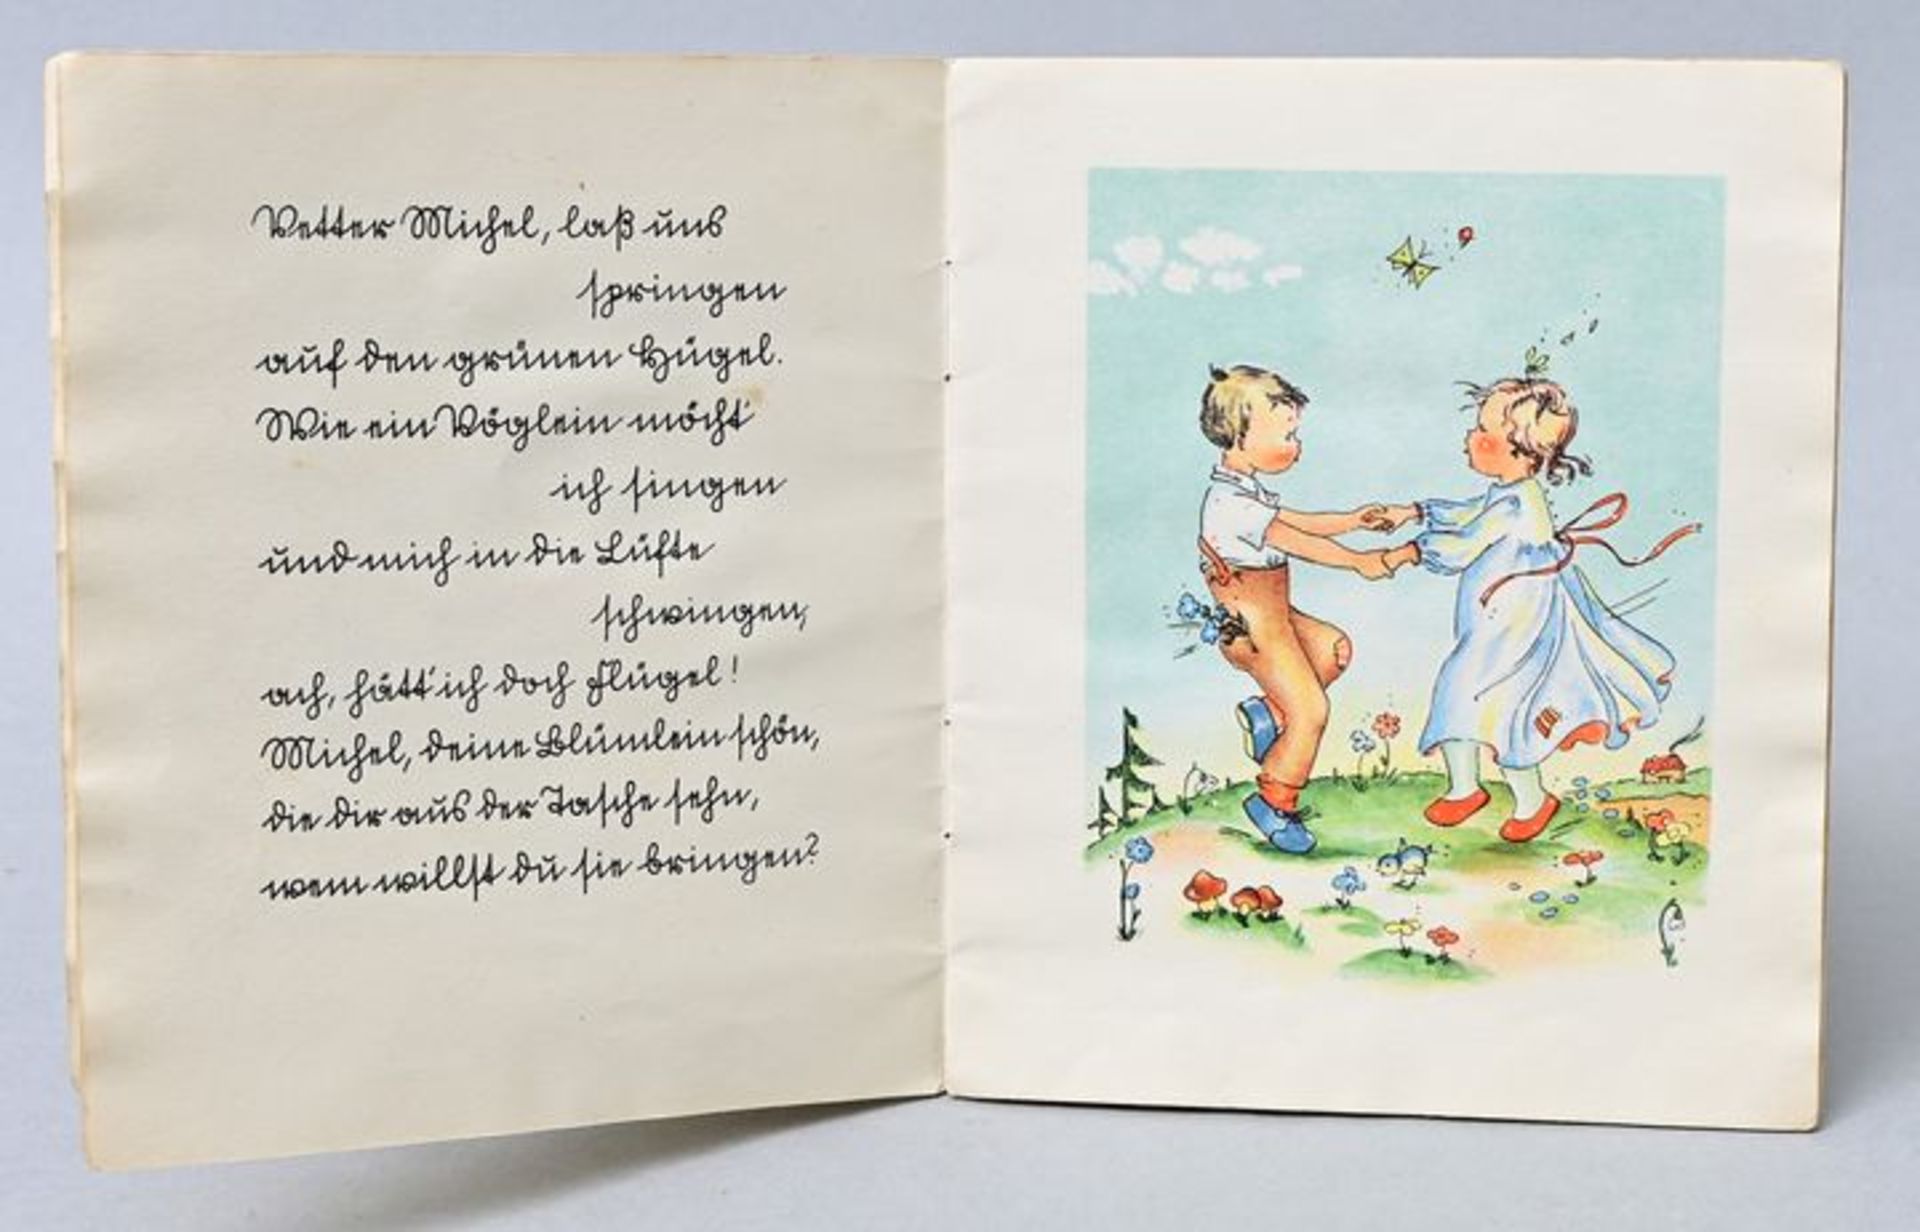 Vetter Michel, laß uns
springen
auf den grünen Hügel.
Wie ein Vöglein möcht'
ich singen
und mich in die Lüfte
schwingen,
ach, hätt' ich doch Flügel!
Michel, deine Blümlein schön,
die dir aus der Tasche sehn,
wem willst du sie bringen?